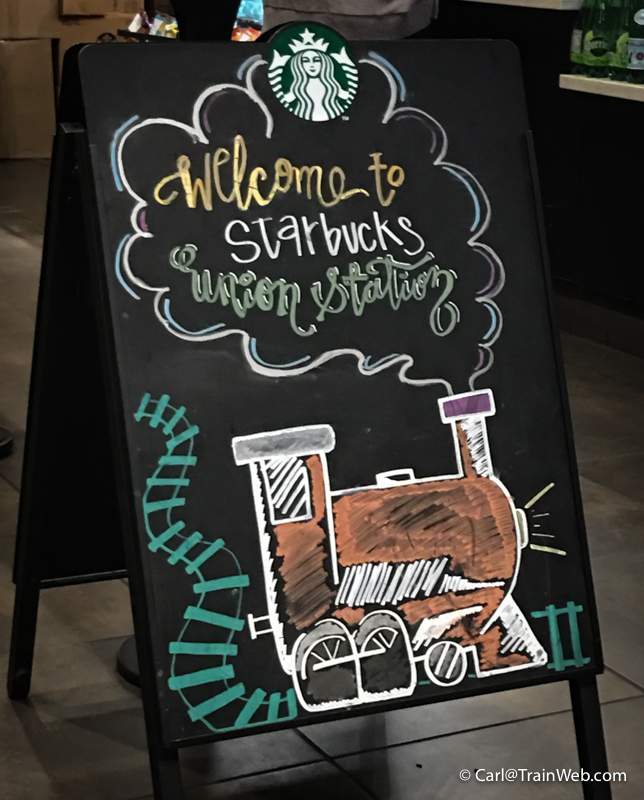 Welcome to
Starbucks
Union Station
© Carl@TrainWeb.com